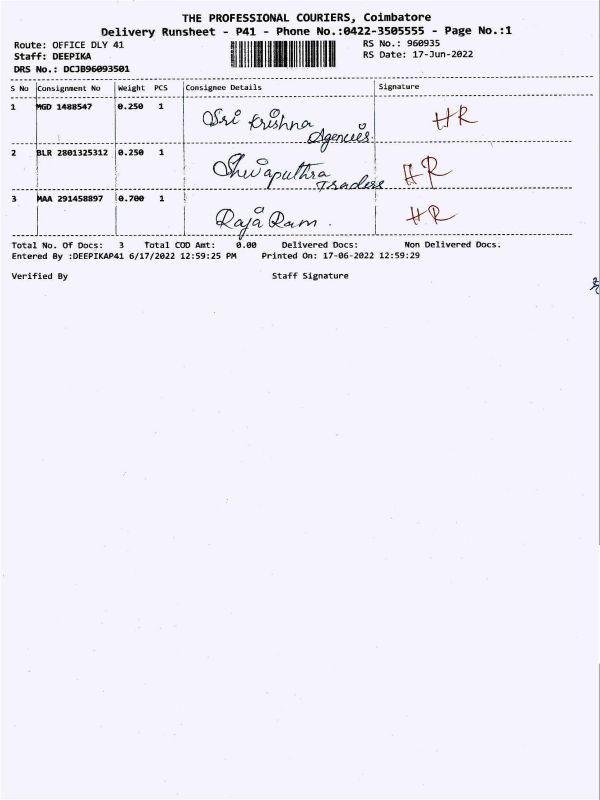 THE PROFESSIONAL COURIERS, Coimbatore
Delivery Runsheet - P41 - Phone No.:0422-3505555 - Page No.:1
Route: OFFICE DLY 41 RS No.: 960935
Staff: DEEPIKA RS Date: 17-Jun-2022
DRS No.: DCJB96093501
S No Consignment No Weight PCS Consignee Details Signature
1 MGD 1488547 0.250 1 Sri Krishna Agencies HR
2 BLR 2801325312 0.250 1 Shivaputhra Traders HR
3 MAA 291458897 0.700 1 Raja Ram. HR
Total No. Of Docs: 3 Total COD Amt: 0.00 Delivered Docs: Non Delivered Docs.
Entered By :DEEPIKAP41 6/17/2022 12:59:25 PM Printed On: 17-06-2022 12:59:29
Verified By Staff Signature